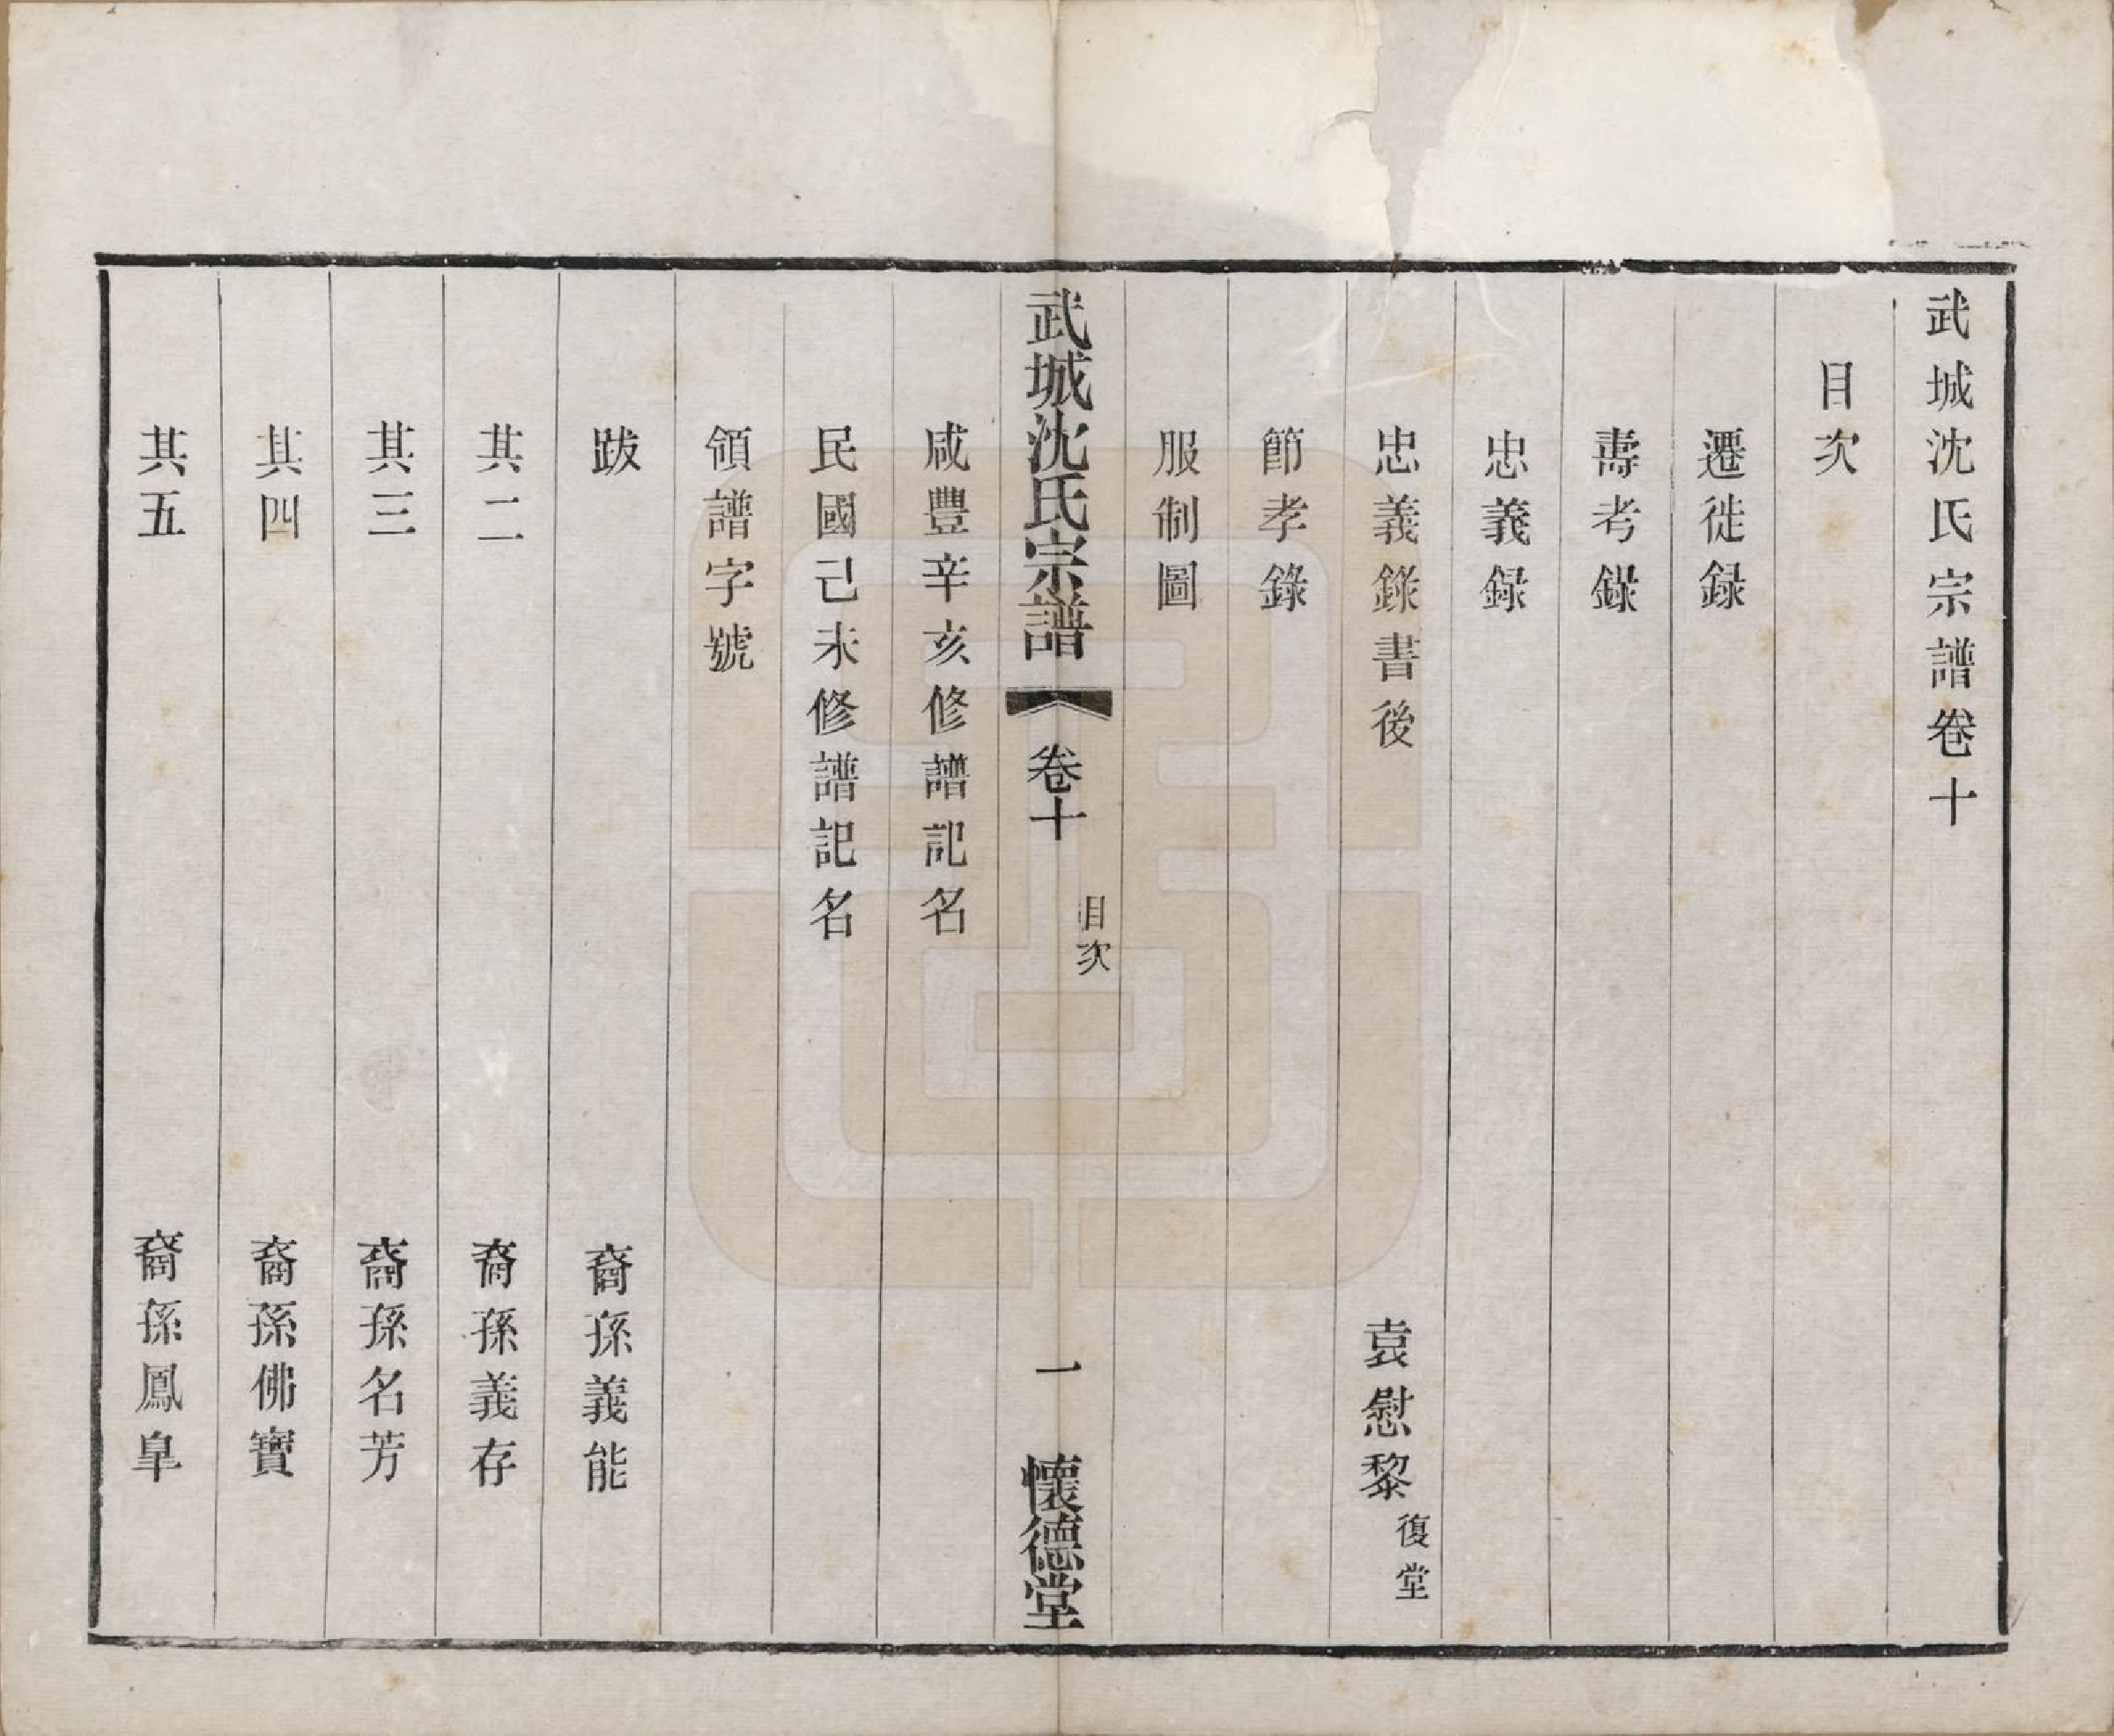 武城沈氏宗譜卷十
目次
遷徙録
壽考録
忠義録
忠義錄書後 袁慰黎 復堂
節孝錄
服制圖
武城沈氏宗譜 卷十 目次 一 懷德堂
咸豐辛亥修譜記名
民國己未修譜記名
領譜字號
跋 裔孫義能
其二 裔孫義存
其三 裔孫名芳
其四 裔孫佛寶
其五 裔孫鳳皐